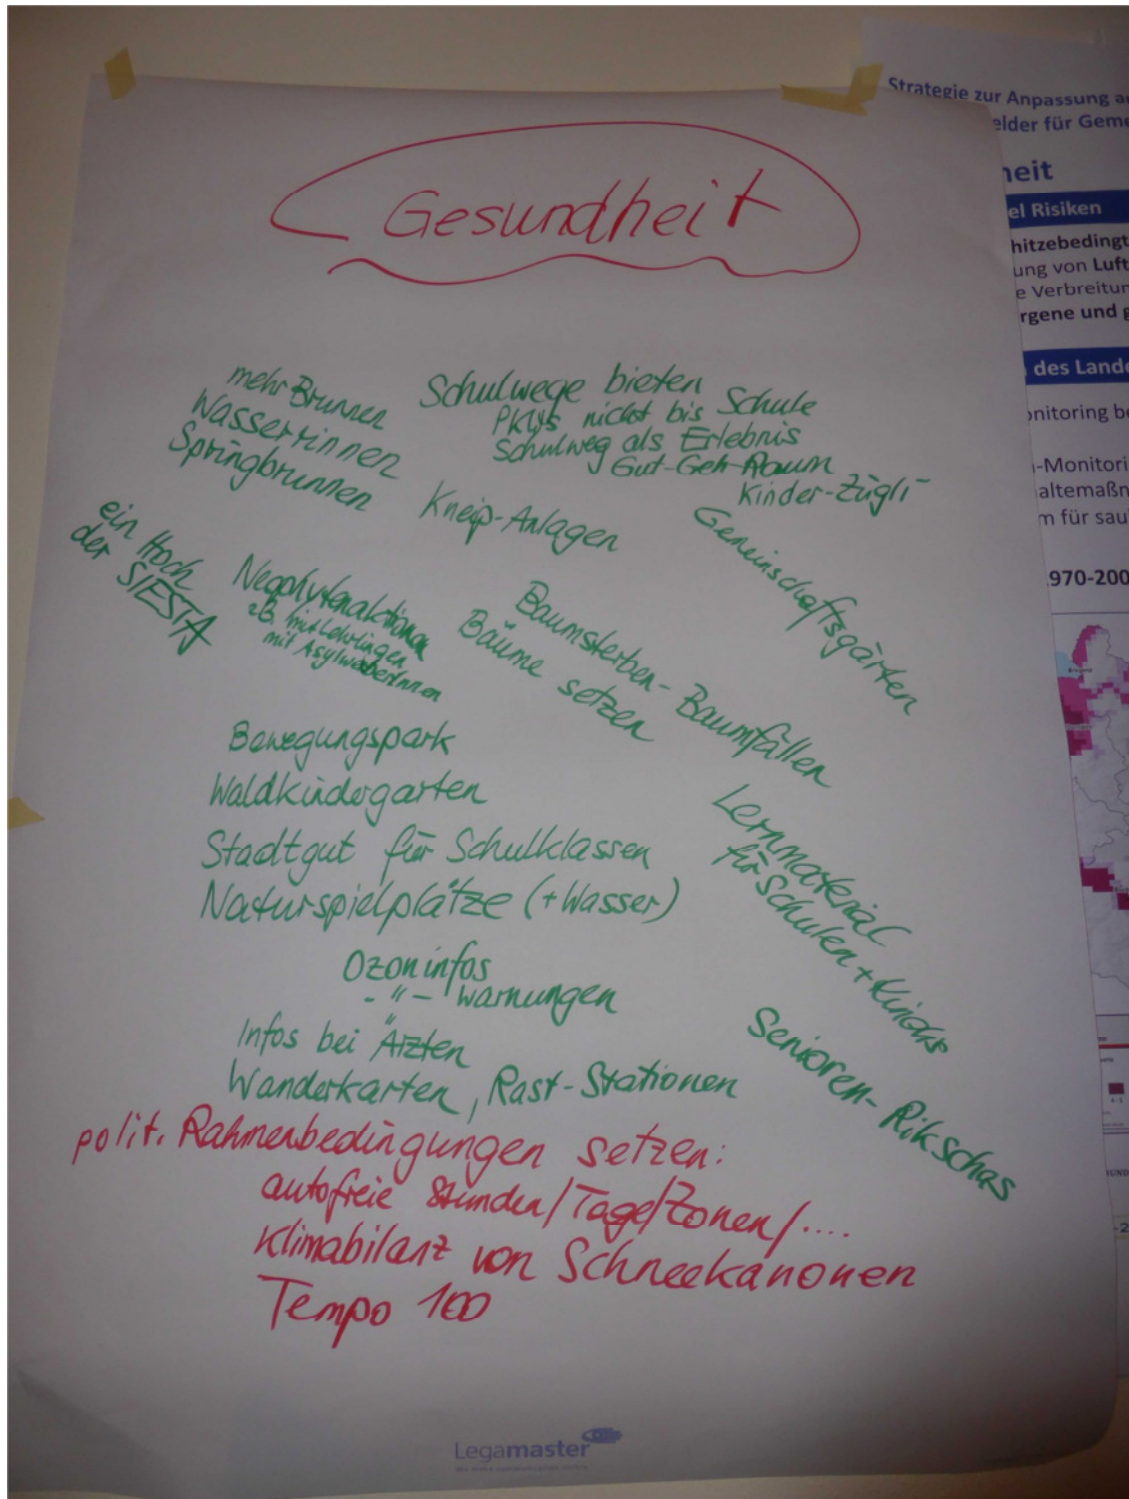 Gesundheit
mehr Brunnen
Wasserrinnen
Springbrunnen
Schulwege bieten
PKWs nicht bis Schule
Schulweg als Erlebnis
Gut-Geh-Raum
Kinder-Zügli
Kneip-Anlagen
Gemeinschaftsgärten
ein Hoch
der SIESTA
Neophytenaktionen
zB. mit Lehrlingen
mit AsylwerberInnen
Baumsterben - Baumfällen
Bäume setzen
Bewegungspark
Waldkindergarten
Stadtgut für Schulklassen
Naturspielplätze (+Wasser)
Lernmaterial
für Schulen + Kindis
Ozoninfos
- " - warnungen
Infos bei Ärzten
Wanderkarten, Rast-Stationen
Senioren-Rikschas
polit. Rahmenbedingungen setzen:
autofreie Stunden/Tage/Zonen/....
Klimabilanz von Schneekanonen
Tempo 100
Legamaster
Strategie zur Anpassung
elder für Geme
heit
el Risiken
hitzebedingt
ung von Luft
e Verbreitun
rgene und
des Lande
onitoring be
-Monitori
altemaßn
m für sau
970-200